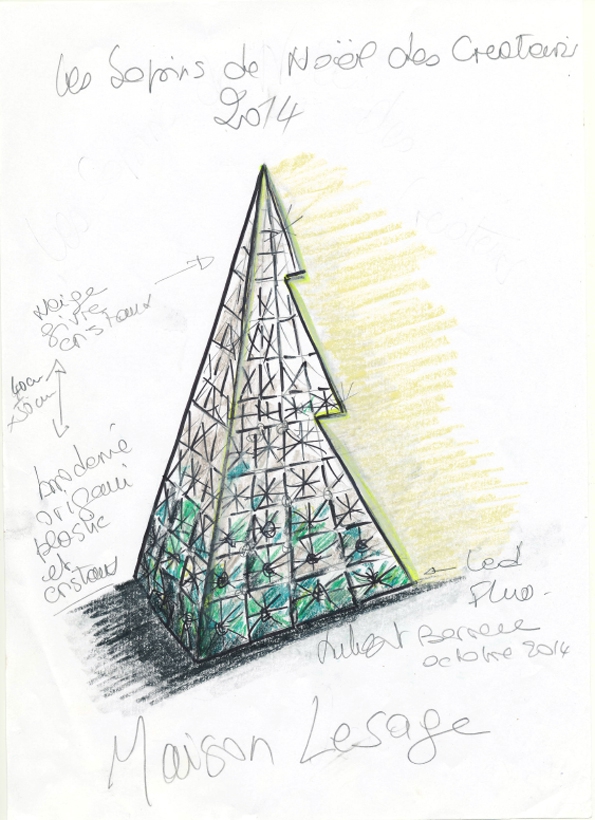 Les Sapins de Noël des Createurs
2014
Neige
givre
cristaux
broderie
origami
plastic
et
cristaux
Led
Fluo.
Hubert Barrere
octobre 2014
Maison Lesage